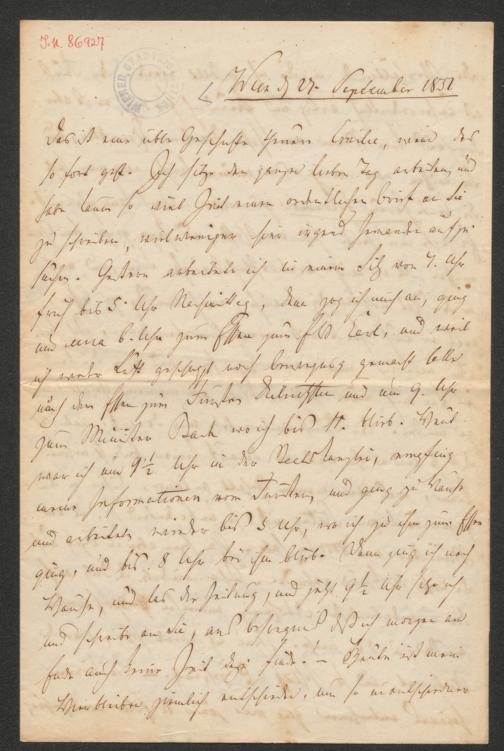 I.N. 86927
Wien d 27. September 1851
Das ist eine üble Geschichte theuere Cäcilie, wenn das
so fort geht. Ich sitze den ganzen lieben Tag arbeiten, und
habe kaum so viel Zeit einen ordentlichen Brief an Sie
zu schreiben, viel weniger hier irgend Jemanden aufzu
suchen. Gestern arbeitete ich in einem Sitz von 7. Uhr
früh bis 5. Uhr Nachmittag, dann zog ich mich an, ging
um 6. Uhr zum Essen zum und weil
ich weder Luft geschnappt noch Bewegung gemacht hatte
nach dem Essen zum Fürsten und um 9. Uhr
zum Minister Bach wo ich bis 11. blieb. Heut
war ich um 9½ Uhr in der Reichskanzlei, empfing
meine Informationen vom Fürsten, und ging zu Hause
und arbeitete wieder bis 5 Uhr, wo ich zu ihm zum Essen
ging, und bis 8 Uhr bei ihm blieb. Dann ging ich nach
Hause, und las die Zeitung, und jetzt 9½ Uhr sitze ich
und schreibe an Sie, aus Besorgniß daß ich morgen am
Ende auch keine Zeit dazu finde! – Heute ist mein
Hierbleiben ziemlich entschieden, um so unentschiedener